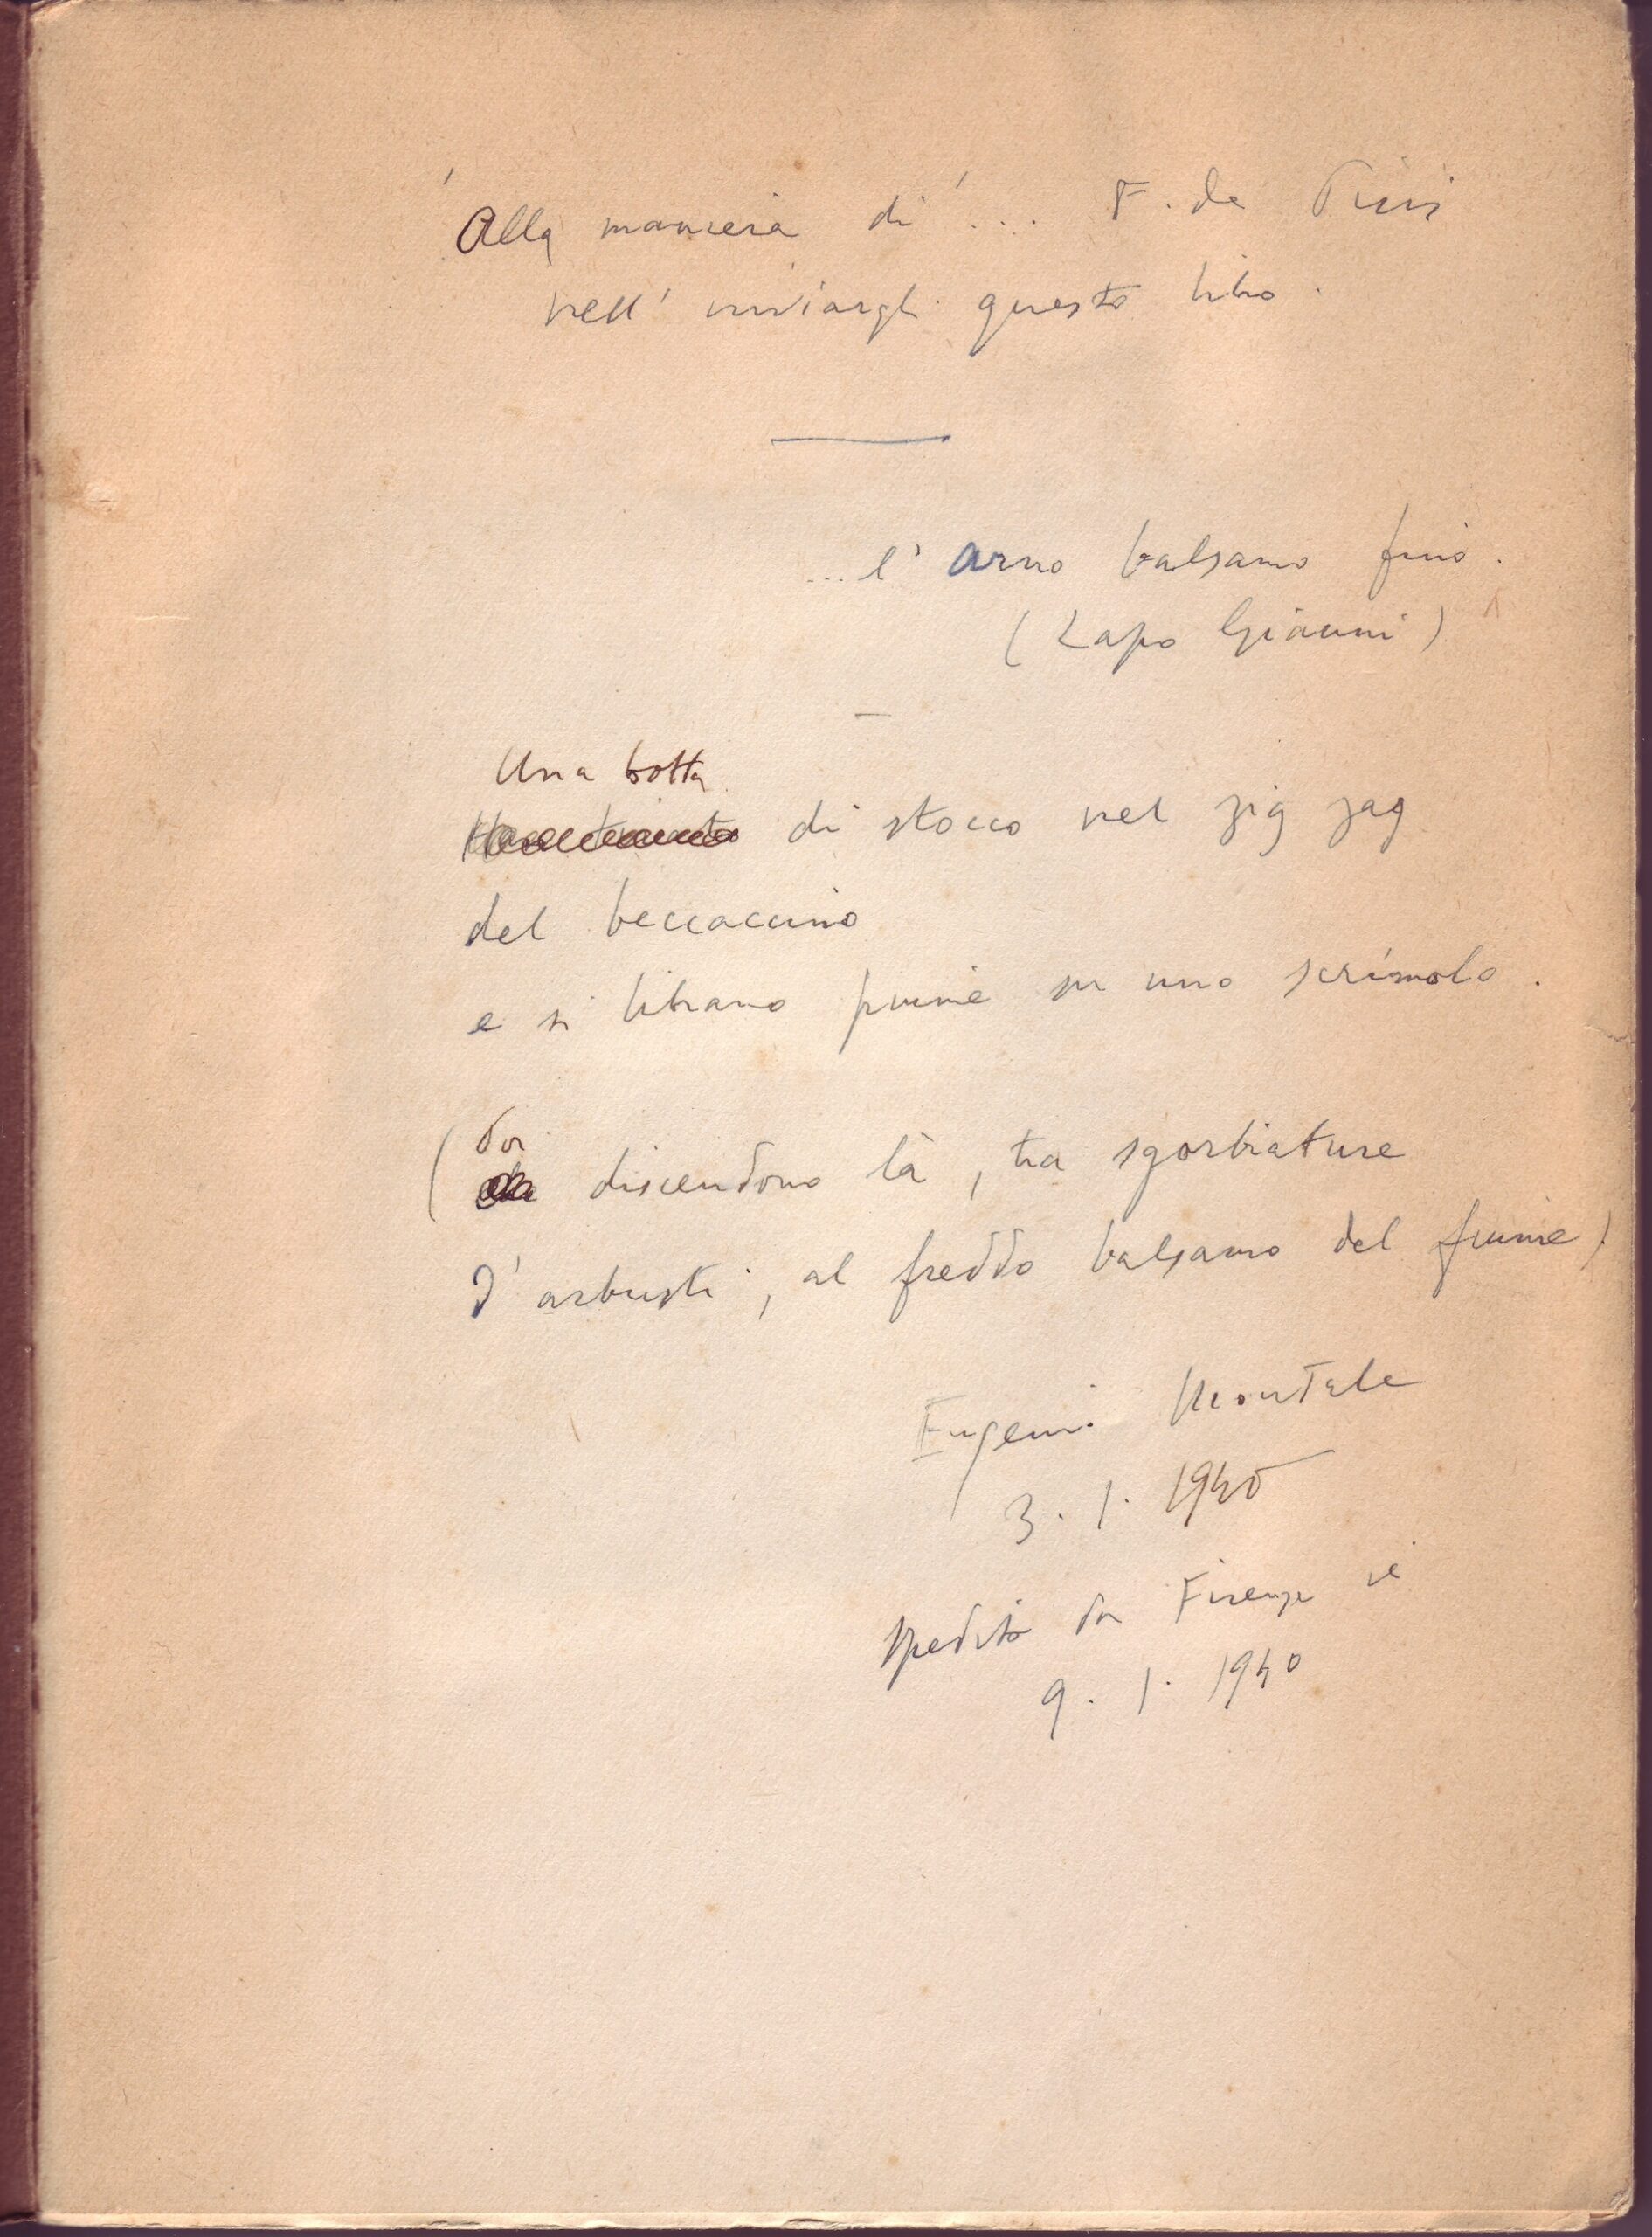 'Alla maniera di' ... F. de Pisis
nell' inviargli questo libro.
... l'Arno balsamo fino.
(Lapo Gianni)
Una botta
di stocco nel zig zag
del beccaccino
e si librano piume su uno scrimolo.
Poi
( discendono là, tra sgorbiature
d'arbusti, al freddo balsamo del fiume)
Eugenio Montale
3. 1. 1940
spedito da Firenze il
9. 1. 1940